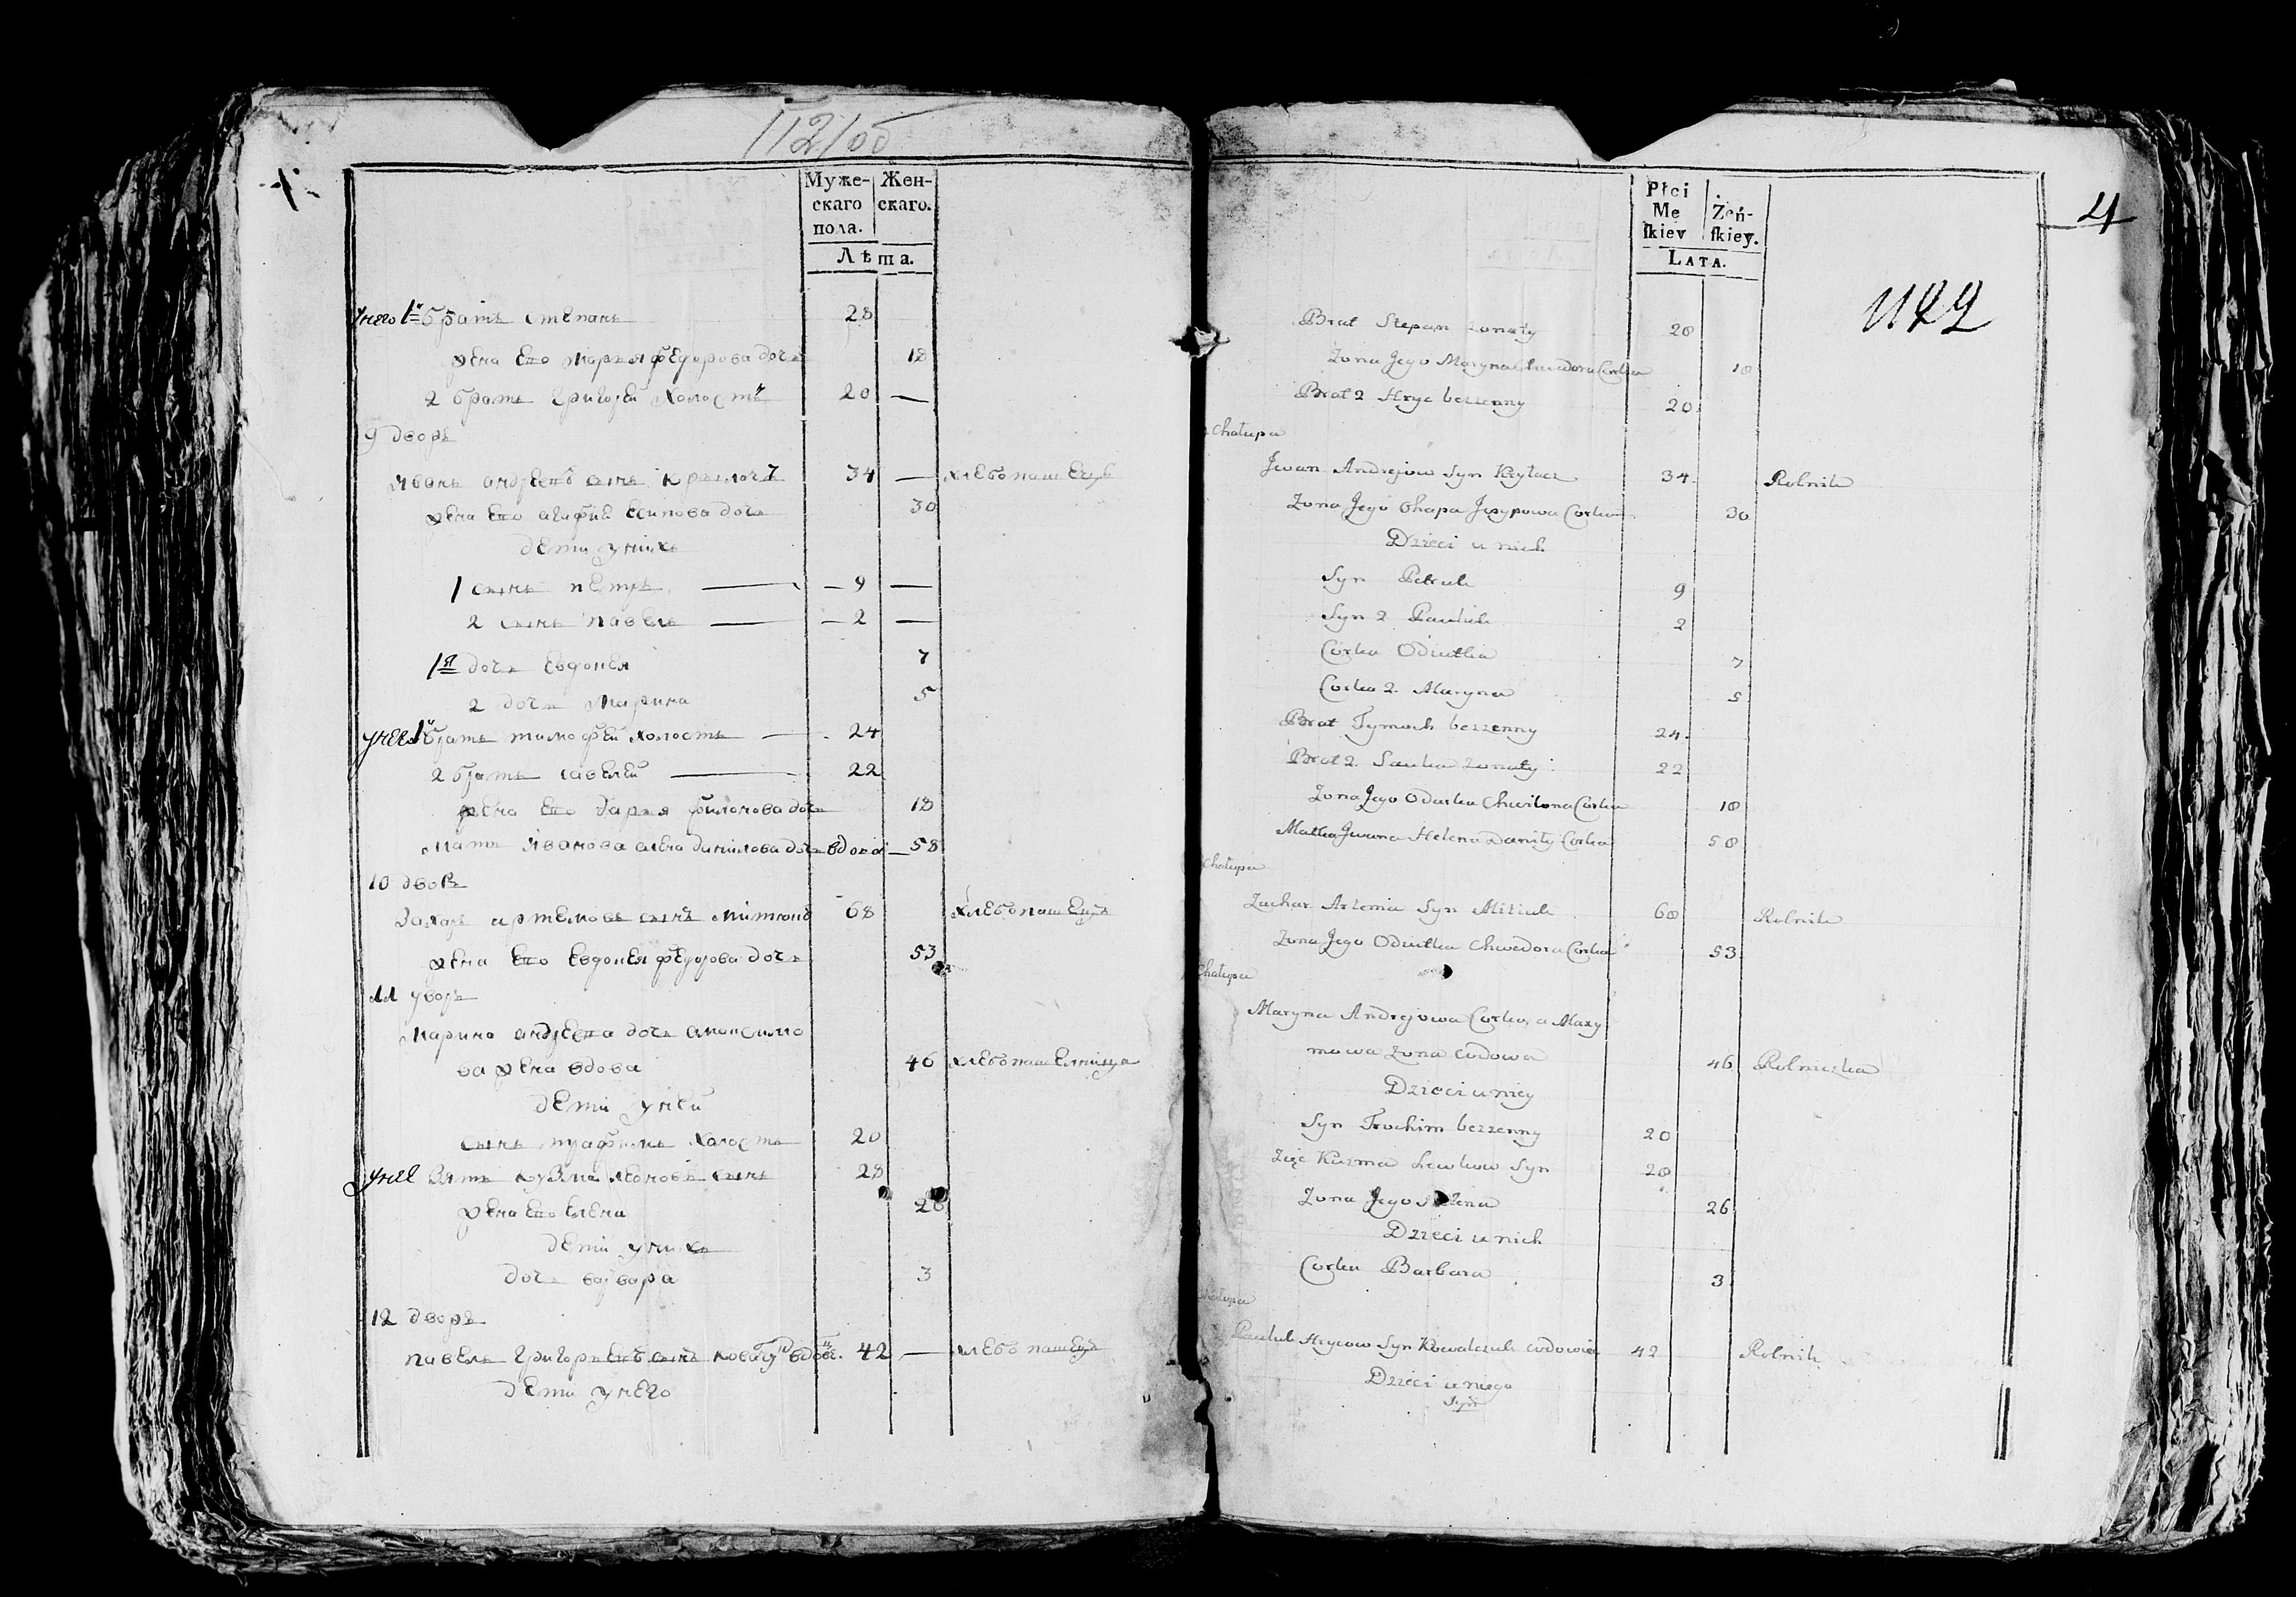 112/об
Муже- Жен-
скаго скаго.
пола.
Лѣта.
у него 1й братъ степанъ 28
жена Его Марья федорова дочь 18
2 братъ григорей холостъ 20 —
9 дворъ
Иванъ андреевъ сынъ крылачъ 34 — хлебопашецъ
жена Его агафия Есипова дочь 30
дети у нихъ
1 сынъ петръ — 9 —
2 сынъ павелъ — 2 —
1я дочь Евдокея 7
2 дочь Марина 5
у него 1й братъ тимофей холостъ — 24
2 братъ савелей — 22
жена Его дарья филонова дочь 18
мать Иванова алена данилова дочь вдова — 58
10 дворъ
Захаръ артемовъ сынъ митюкъ 68 хлебопашецъ
жена Его Евдокея федорова дочь 53
11 дворъ
Марина андреева дочь амаксимо
ва жена вдова 46 хлебопашеница
дети у ней
сынъ трафимъ холостъ 20
у нее Зять кузма сынъ 28
жена Его Елена 26
дети у нихъ
дочь варвара 3
12 дворъ
павелъ григорьевъ сынъ вдовъ. 42 — хлебопашецъ
дети у него
4
Płci Żeń-
Me ſkiey.
ſkiey
Lata.
1122
Brat Stepan zonaty 28
Zona Jego Maryna Chwedora Corka 18
Brat 2 Hryc bezzenny 20
Chałupa
Jwan Andrejow Syn Kryłacz 34 Rolnik
Zona Jego Ohapa Jozypowa Corka 30
Dzieci u nich
Syn Petruk 9
Syn 2 Pauluk 2
Corka Odiutka 7
Corka 2. Maryna 5
Brat Tymoch bezzenny 24
Brat 2. Sauka zonaty 22
Zona Jego Odarka Chwilona Corka 18
Matka Jwana Helena Daniły Corka 58
Chałupa
Zachar Artemia Syn Mitiuk 68 Rolnik
Zona Jego Odiutka Chwedora Corka 53
Chałupa
Maryna Andrejowa Corka, a Maxy
mowa zona wdowa 46 Rolniczka
Dzieci u niey
Syn Trochim bezzenny 20
Zięć Kuzma Lewkow Syn 28
Zona Jego Helena 26
Dzieci u nich
Corka Barbara 3
Chałupa
Pauluk Hrycow Syn Kowalczuk wdowiec 42 Rolnik
Dzieci u niego
Syn